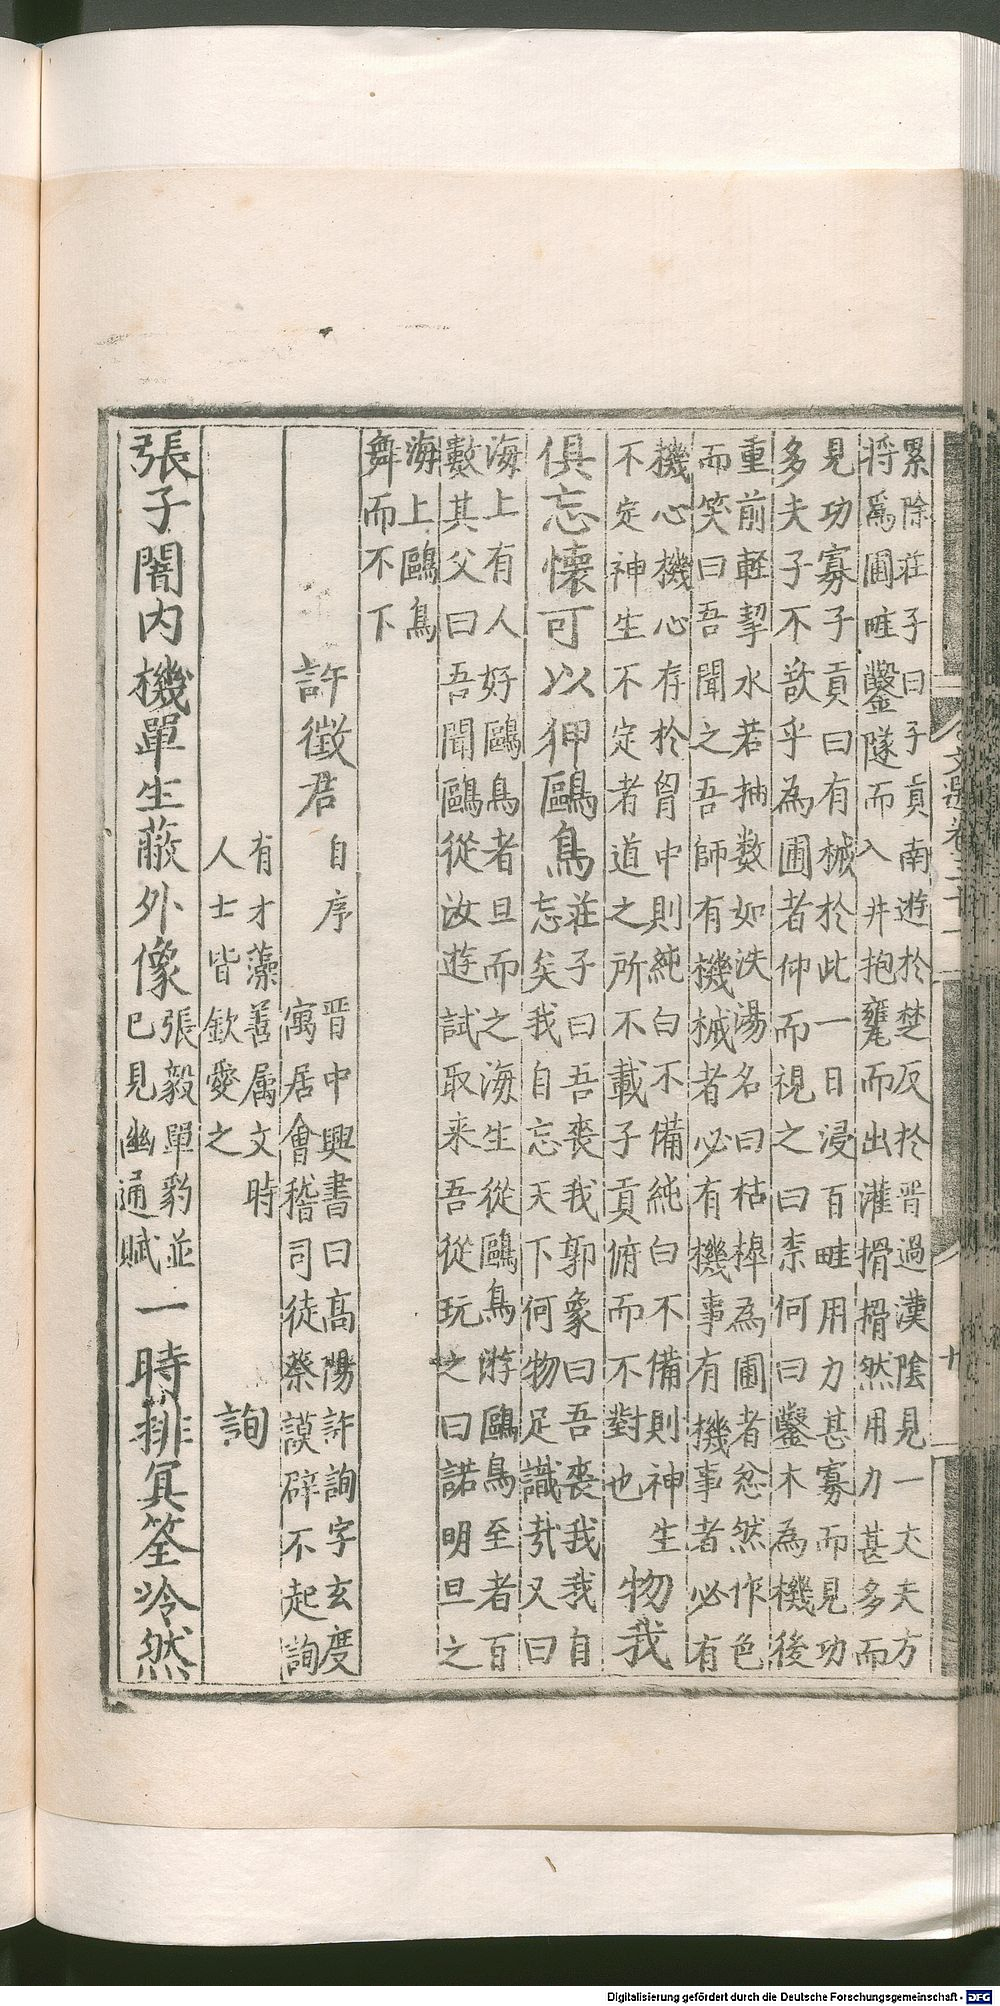 累除莊子曰子貢南遊於楚反於晋過漢陰見一丈夫方
將爲圃畦鑿隧而入井抱甕而出灌搰搰然用力甚多而
見功寡子貢曰有械於此一日浸百畦用力甚寡而見功
多夫子不欲乎為圃者仰而視之曰柰何曰鑿木為機後
重前輕挈水若抽数如泆湯名曰桔橰為圃者忿然作色
而笑曰吾聞之吾師有機械者必有機事有機事者必有
機心機心存於胷中則純白不備純白不備則神生
不定神生不定者道之所不載子貢俯而不對也
物我
俱忘懷可以狎鷗鳥
莊子曰吾喪我郭象曰吾喪我我自
忘矣我自忘天下何物足識㢤又曰
海上有人好鷗鳥者旦而之海生從鷗鳥游鷗鳥至者百
數其父曰吾聞鷗從汝遊試取来吾從玩之曰諾明旦之
海上鷗鳥
舞而不下
許徵君
自序
晋中興書曰高陽許詢字玄度
寓居會稽司徒蔡謨辟不起詢
有才藻善属文時
人士皆欽愛之
詢
張子闇内機單生蔽外像
張毅單豹並
巳見幽通賦
一時排冥筌泠然
文選卷三十一
十
Digitalisierung gefördert durch die Deutsche Forschungsgemeinschaft - DFG